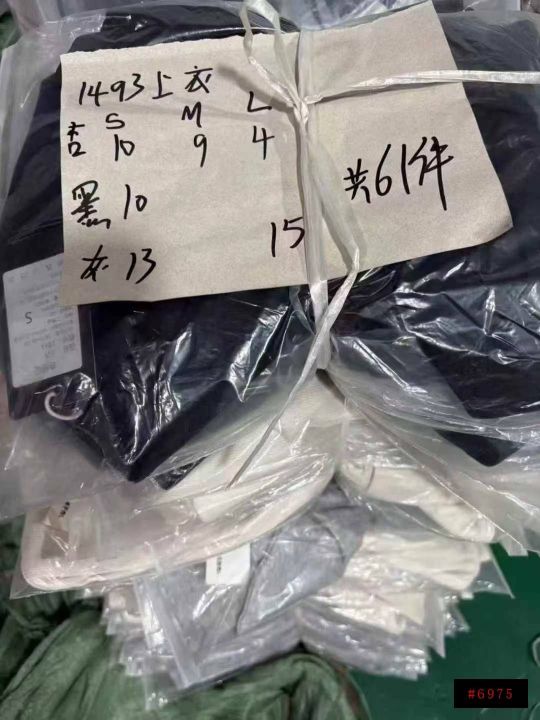 1493上衣
S M L
杏 10 9 4
黑 10
灰 13 15
共61件
S
#6975